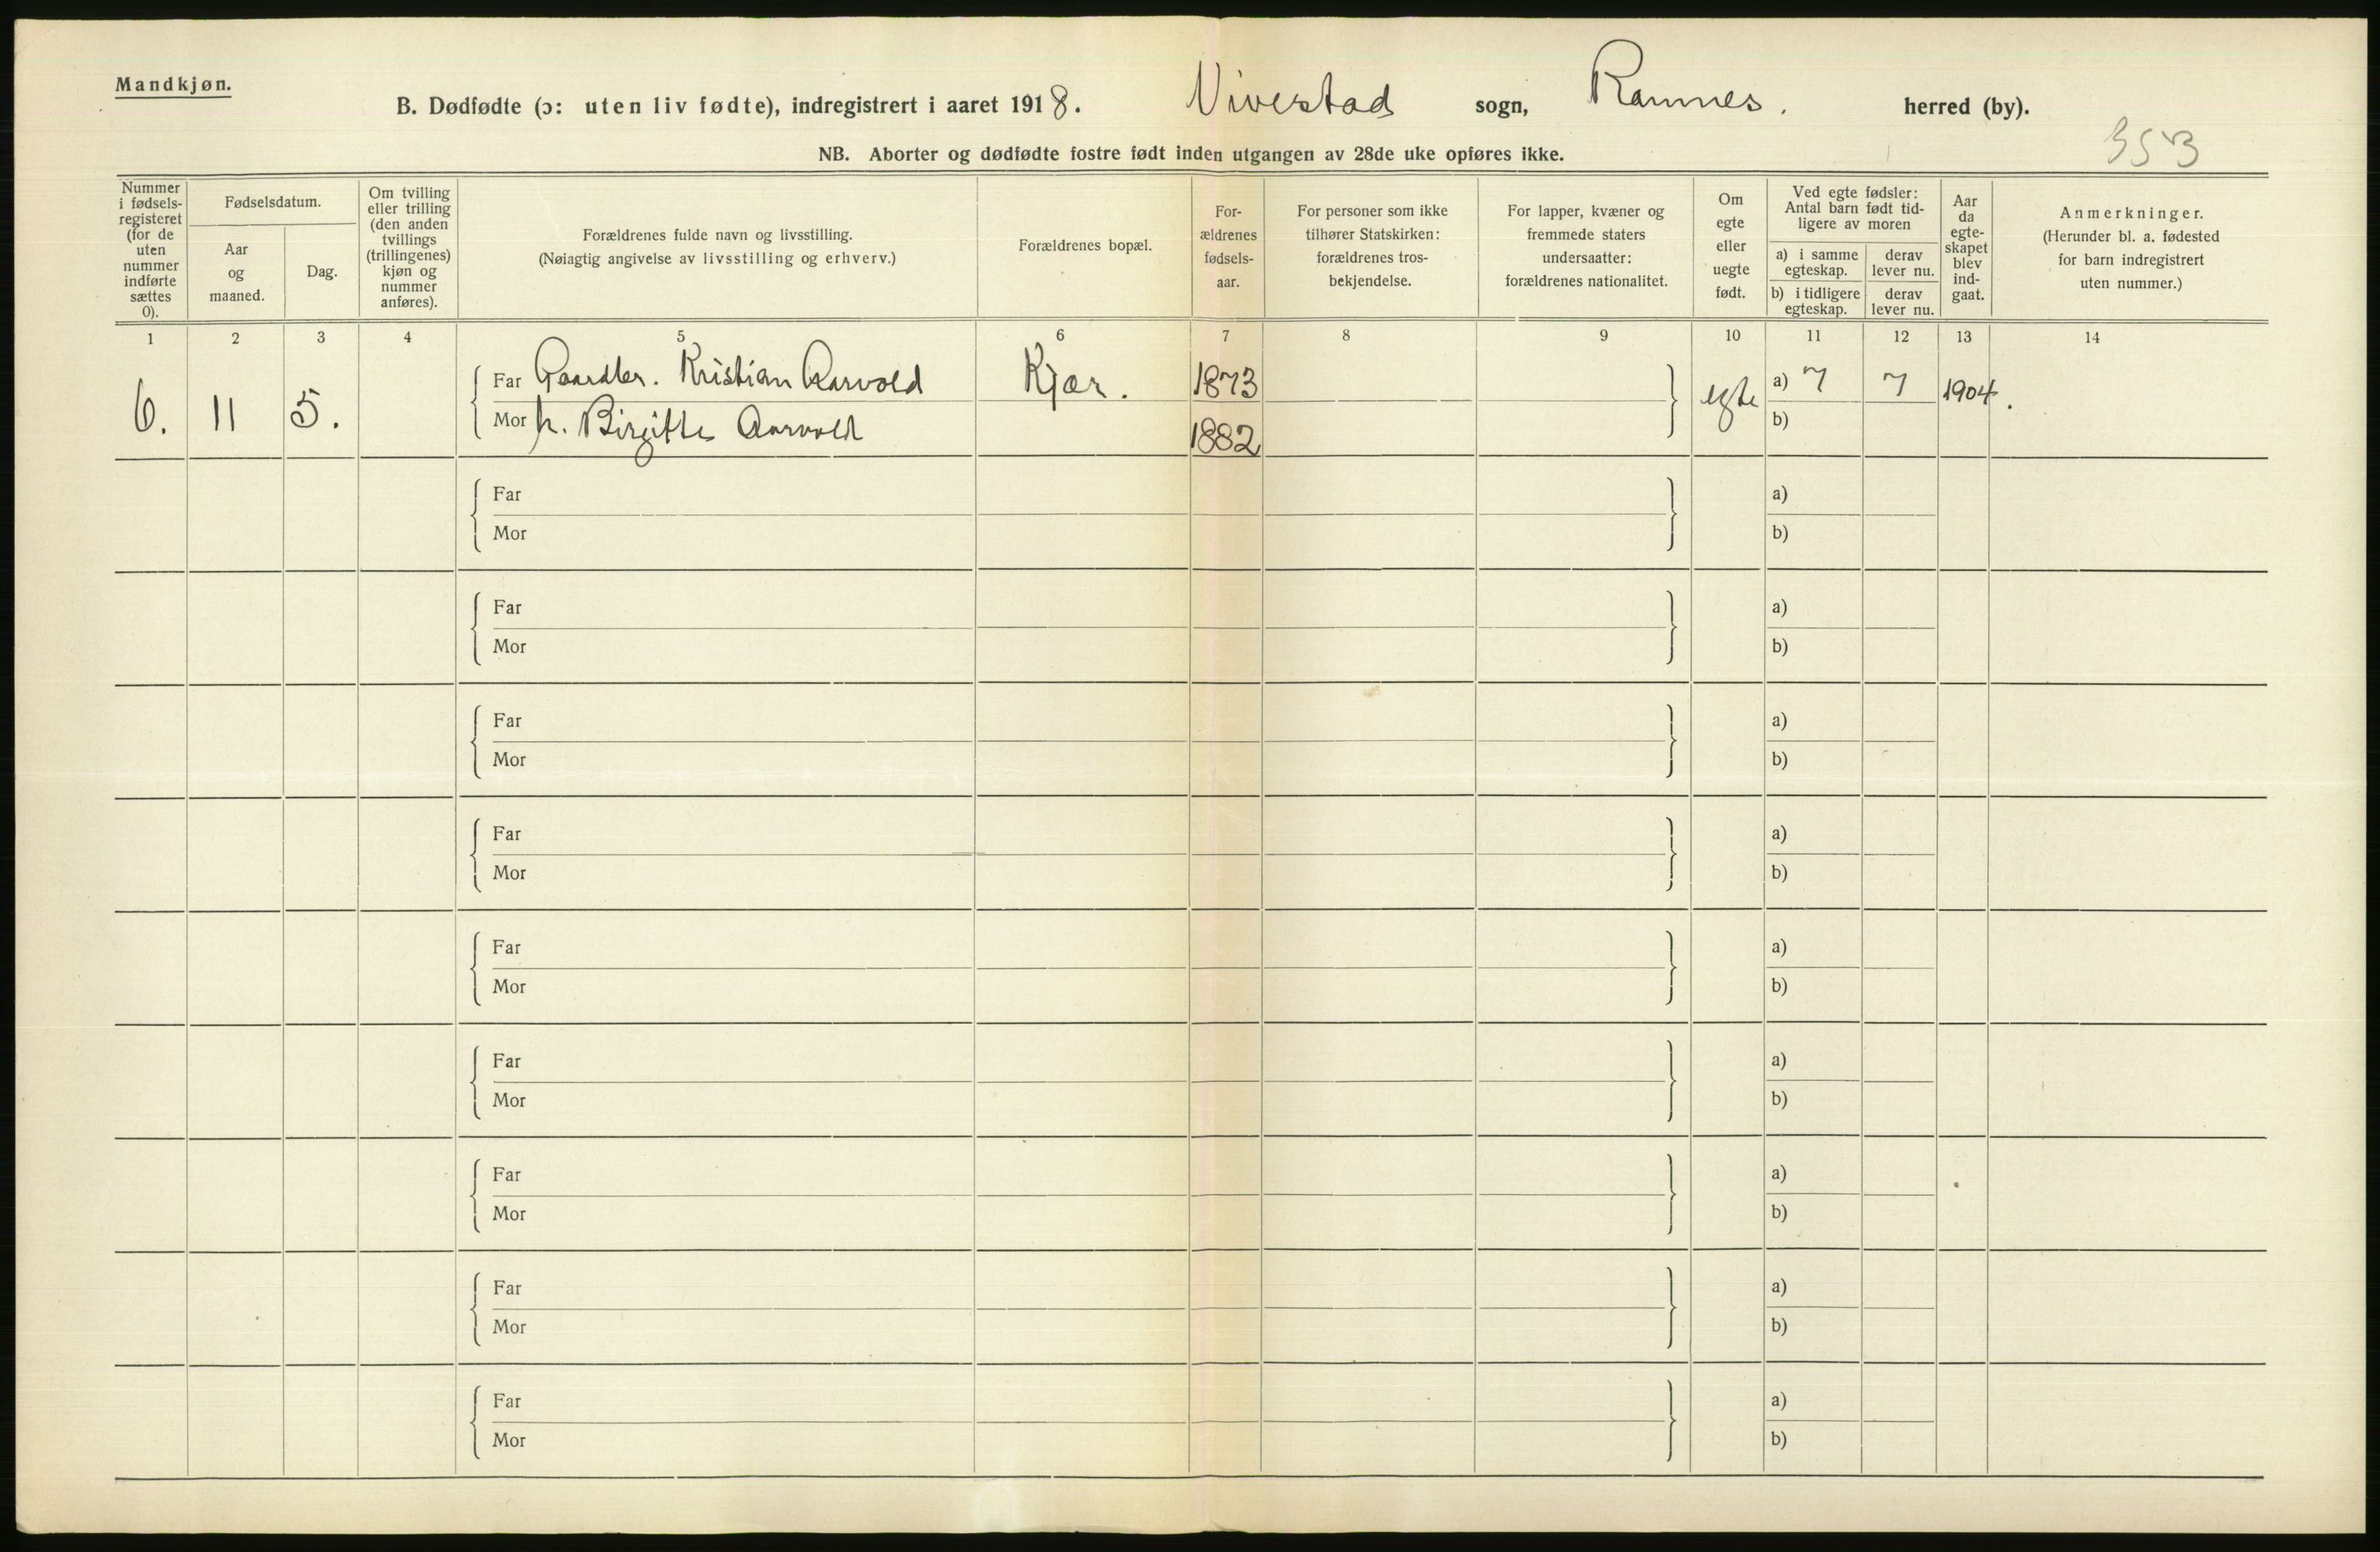 Mandkjøn.
B. Dødfødte (ɔ: uten liv fødte), indregistrert i aaret 1918. Vivestad sogn, Ramnes. herred (by).
353
NB. Aborter og dødfødte fostre født inden utgangen av 28de uke opføres ikke.
Nummer i fødsels-registeret (for de uten nummer indførte sættes 0).
Fødselsdatum.
Aar og maaned.
Dag.
Om tvilling eller trilling (den anden tvillings (trillingenes) kjøn og nummer anføres).
Forældrenes fulde navn og livsstilling.
(Nøiagtig angivelse av livsstilling og erhverv.)
Forældrenes bopæl.
For-ældrenes fødsels-aar.
For personer som ikke tilhører Statskirken: forældrenes tros-bekjendelse.
For lapper, kvæner og fremmede staters undersaatter: forældrenes nationalitet.
Om egte eller uegte født.
Ved egte fødsler: Antal barn født tid-ligere av moren
a) i samme egteskap.
derav lever nu.
b) i tidligere egteskap.
derav lever nu.
Aar da egte-skapet blev ind-gaat.
Anmerkninger.
(Herunder bl. a. fødested for barn indregistrert uten nummer.)
1 2 3 4 5 6 7 8 9 10 11 12 13 14
Far Gaardbr. Kristian Aarvold Kjær. 1873 a) 7 7 1904.
6. 11 5. egte
Mor h. Birgitte Aarvold 1882 b)
Far a)
Mor b)
Far a)
Mor b)
Far a)
Mor b)
Far a)
Mor b)
Far a)
Mor b)
Far a)
Mor b)
Far a)
Mor b)
Far a)
Mor b)
Far a)
Mor b)